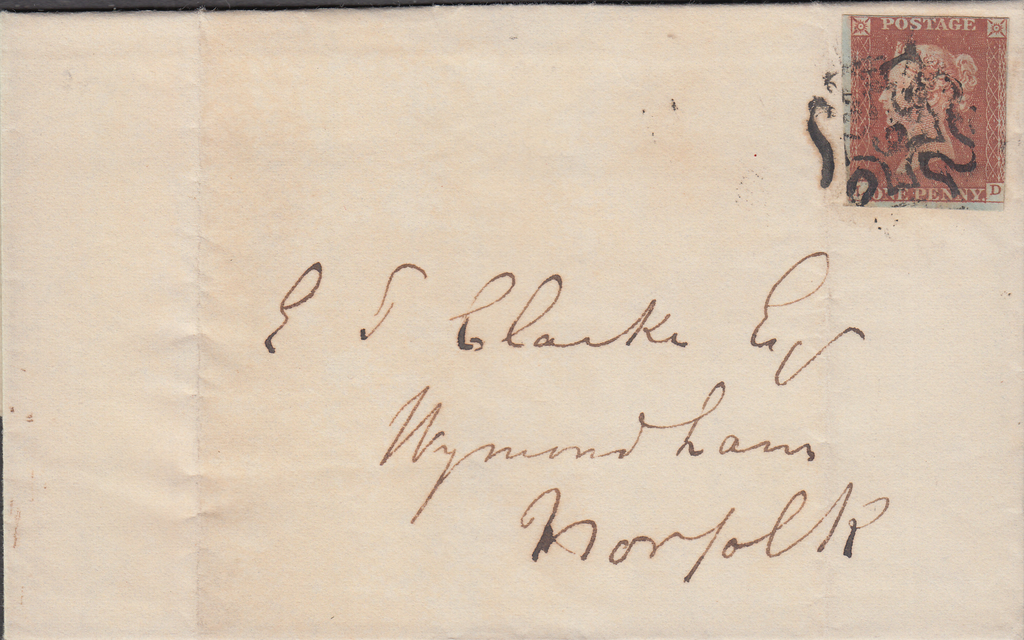 POSTAGE
ONE PENNY.
D
E T Clarke Esq
Wymondham
Norfolk